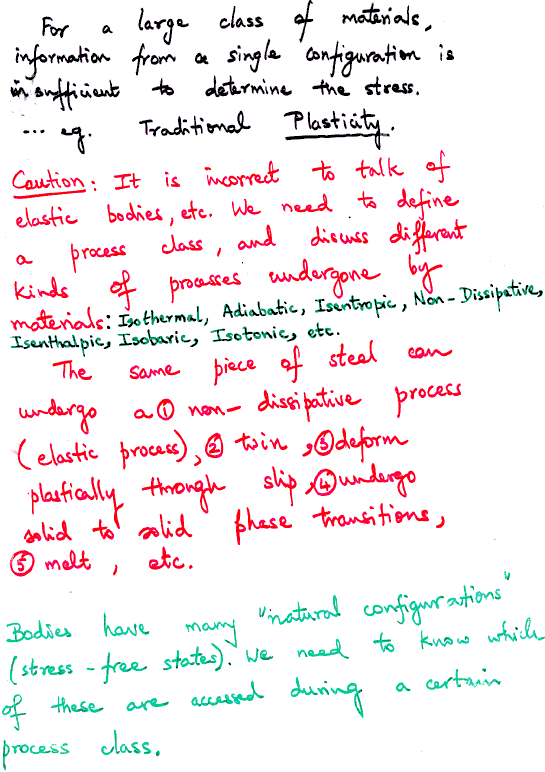 For a large class of materials,
information from a single configuration is
insufficient to determine the stress.
... eg. Traditional Plasticity.
Caution: It is incorrect to talk of
elastic bodies, etc. We need to define
a process class, and discuss different
kinds of processes undergone by
materials: Isothermal, Adiabatic, Isentropic, Non-Dissipative,
Isenthalpic, Isobaric, Isotonic, etc.
The same piece of steel can
undergo a ① non-dissipative process
(elastic process), ② twin, ③ deform
plastically through slip, ④ undergo
solid to solid phase transitions,
⑤ melt, etc.
Bodies have many "natural configurations"
(stress-free states). We need to know which
of these are accessed during a certain
process class.